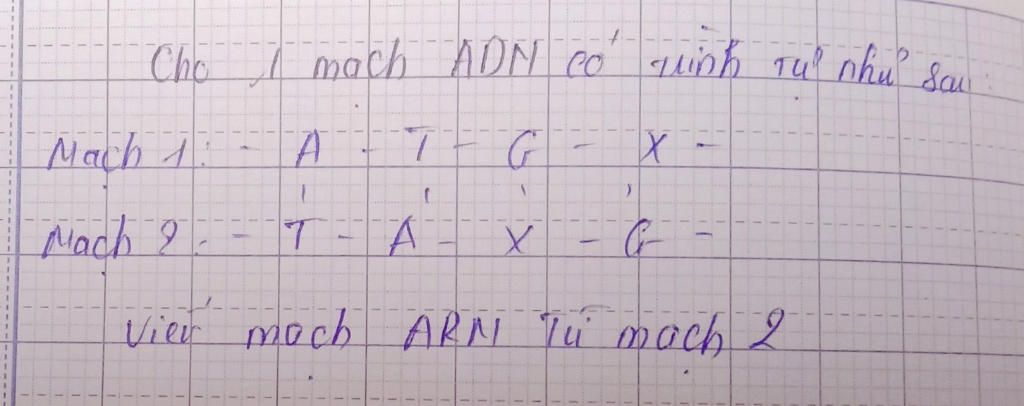 Cho 1 mạch ADN có trình tự như sau:
Mạch 1: - A - T - G - X -
Mạch 2: - T - A - X - G -
Viết mạch ARN từ mạch 2